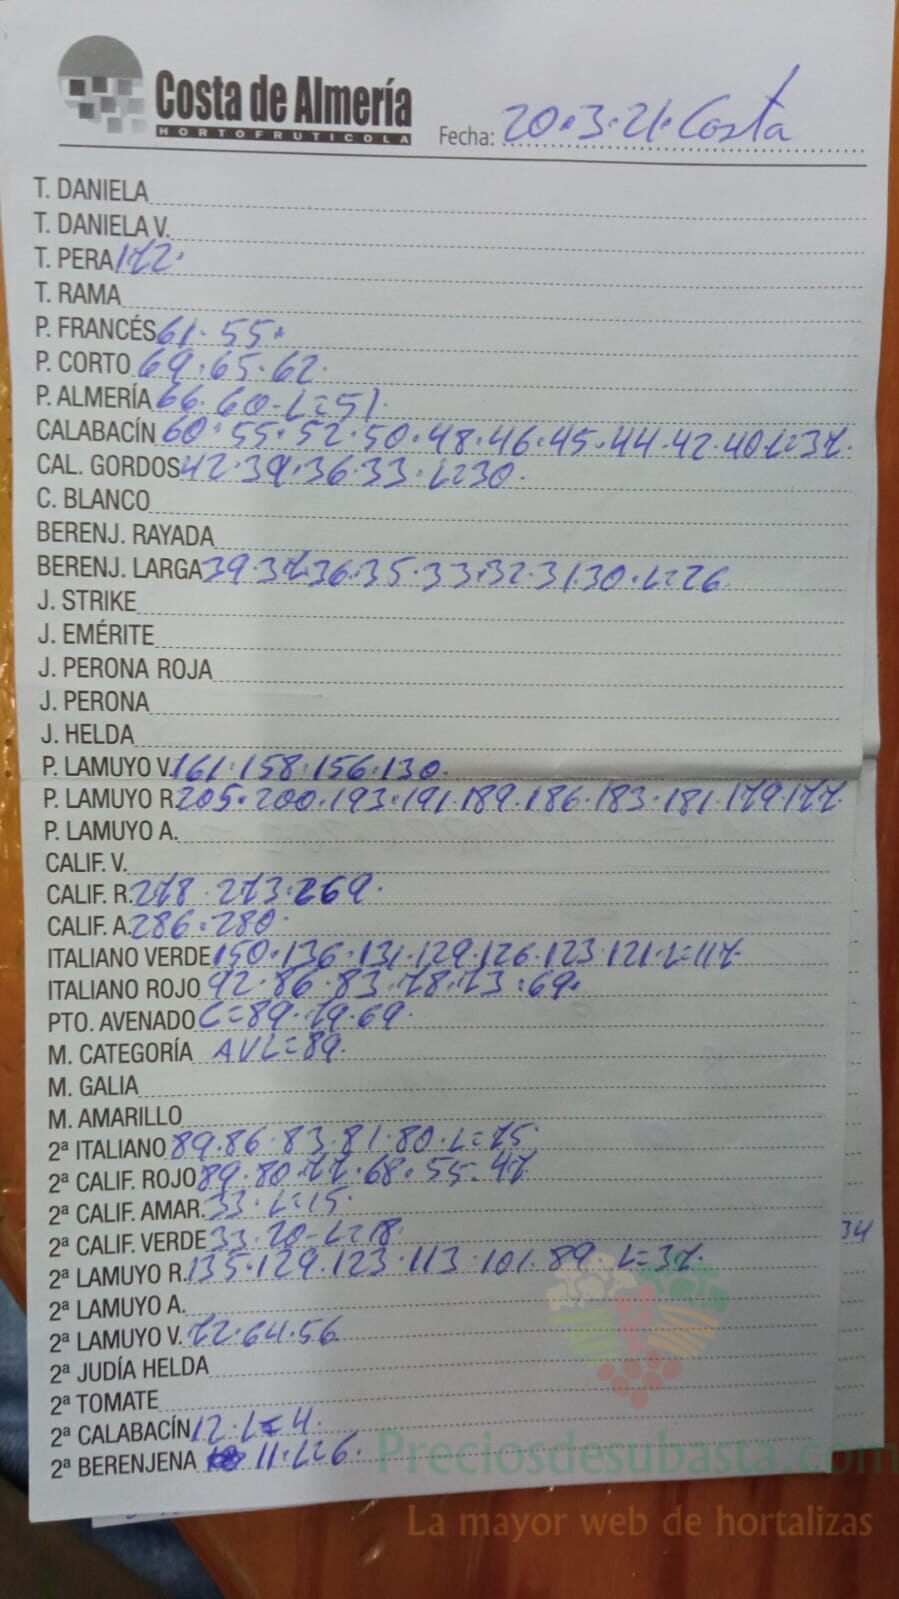 Costa de Almería
HORTOFRUTICOLA
Fecha: 20.3.21. Costa
T. DANIELA
T. DANIELA V.
T. PERA 172.
T. RAMA
P. FRANCÉS 61. 55.
P. CORTO 69.65.62.
P. ALMERÍA 66.60-L=51.
CALABACÍN 60.55.52.50.48.46.45.44.42.40.L=37.
CAL. GORDOS 42.39.36.33.L=30.
C. BLANCO
BERENJ. RAYADA
BERENJ. LARGA 39.37.36.35.33.32.31.30.L=26.
J. STRIKE
J. EMÉRITE
J. PERONA ROJA
J. PERONA
J. HELDA
P. LAMUYO V. 161.158.156.130.
P. LAMUYO R. 205.200.193.191.189.186.183.181.179.177.
P. LAMUYO A.
CALIF. V.
CALIF. R. 278.273.269.
CALIF. A. 286.280.
ITALIANO VERDE 150.136.131.129.126.123.121.L=117.
ITALIANO ROJO 92.86.83.78.73.69.
PTO. AVENADO C=89.79.69.
M. CATEGORÍA AVL=89.
M. GALIA
M. AMARILLO
2ª ITALIANO 89.86.83.81.80.L=75.
2ª CALIF. ROJO 89.80.77.68.55.47.
2ª CALIF. AMAR. 33.L=15.
2ª CALIF. VERDE 33.20-L=18.
34
2ª LAMUYO R. 135.129.123.113.101.89 L=37.
2ª LAMUYO A.
2ª LAMUYO V. 72.64.56.
2ª JUDÍA HELDA
2ª TOMATE
2ª CALABACÍN 12.L=4.
2ª BERENJENA 11.L=6.
Preciosdesubasta.com
La mayor web de hortalizas